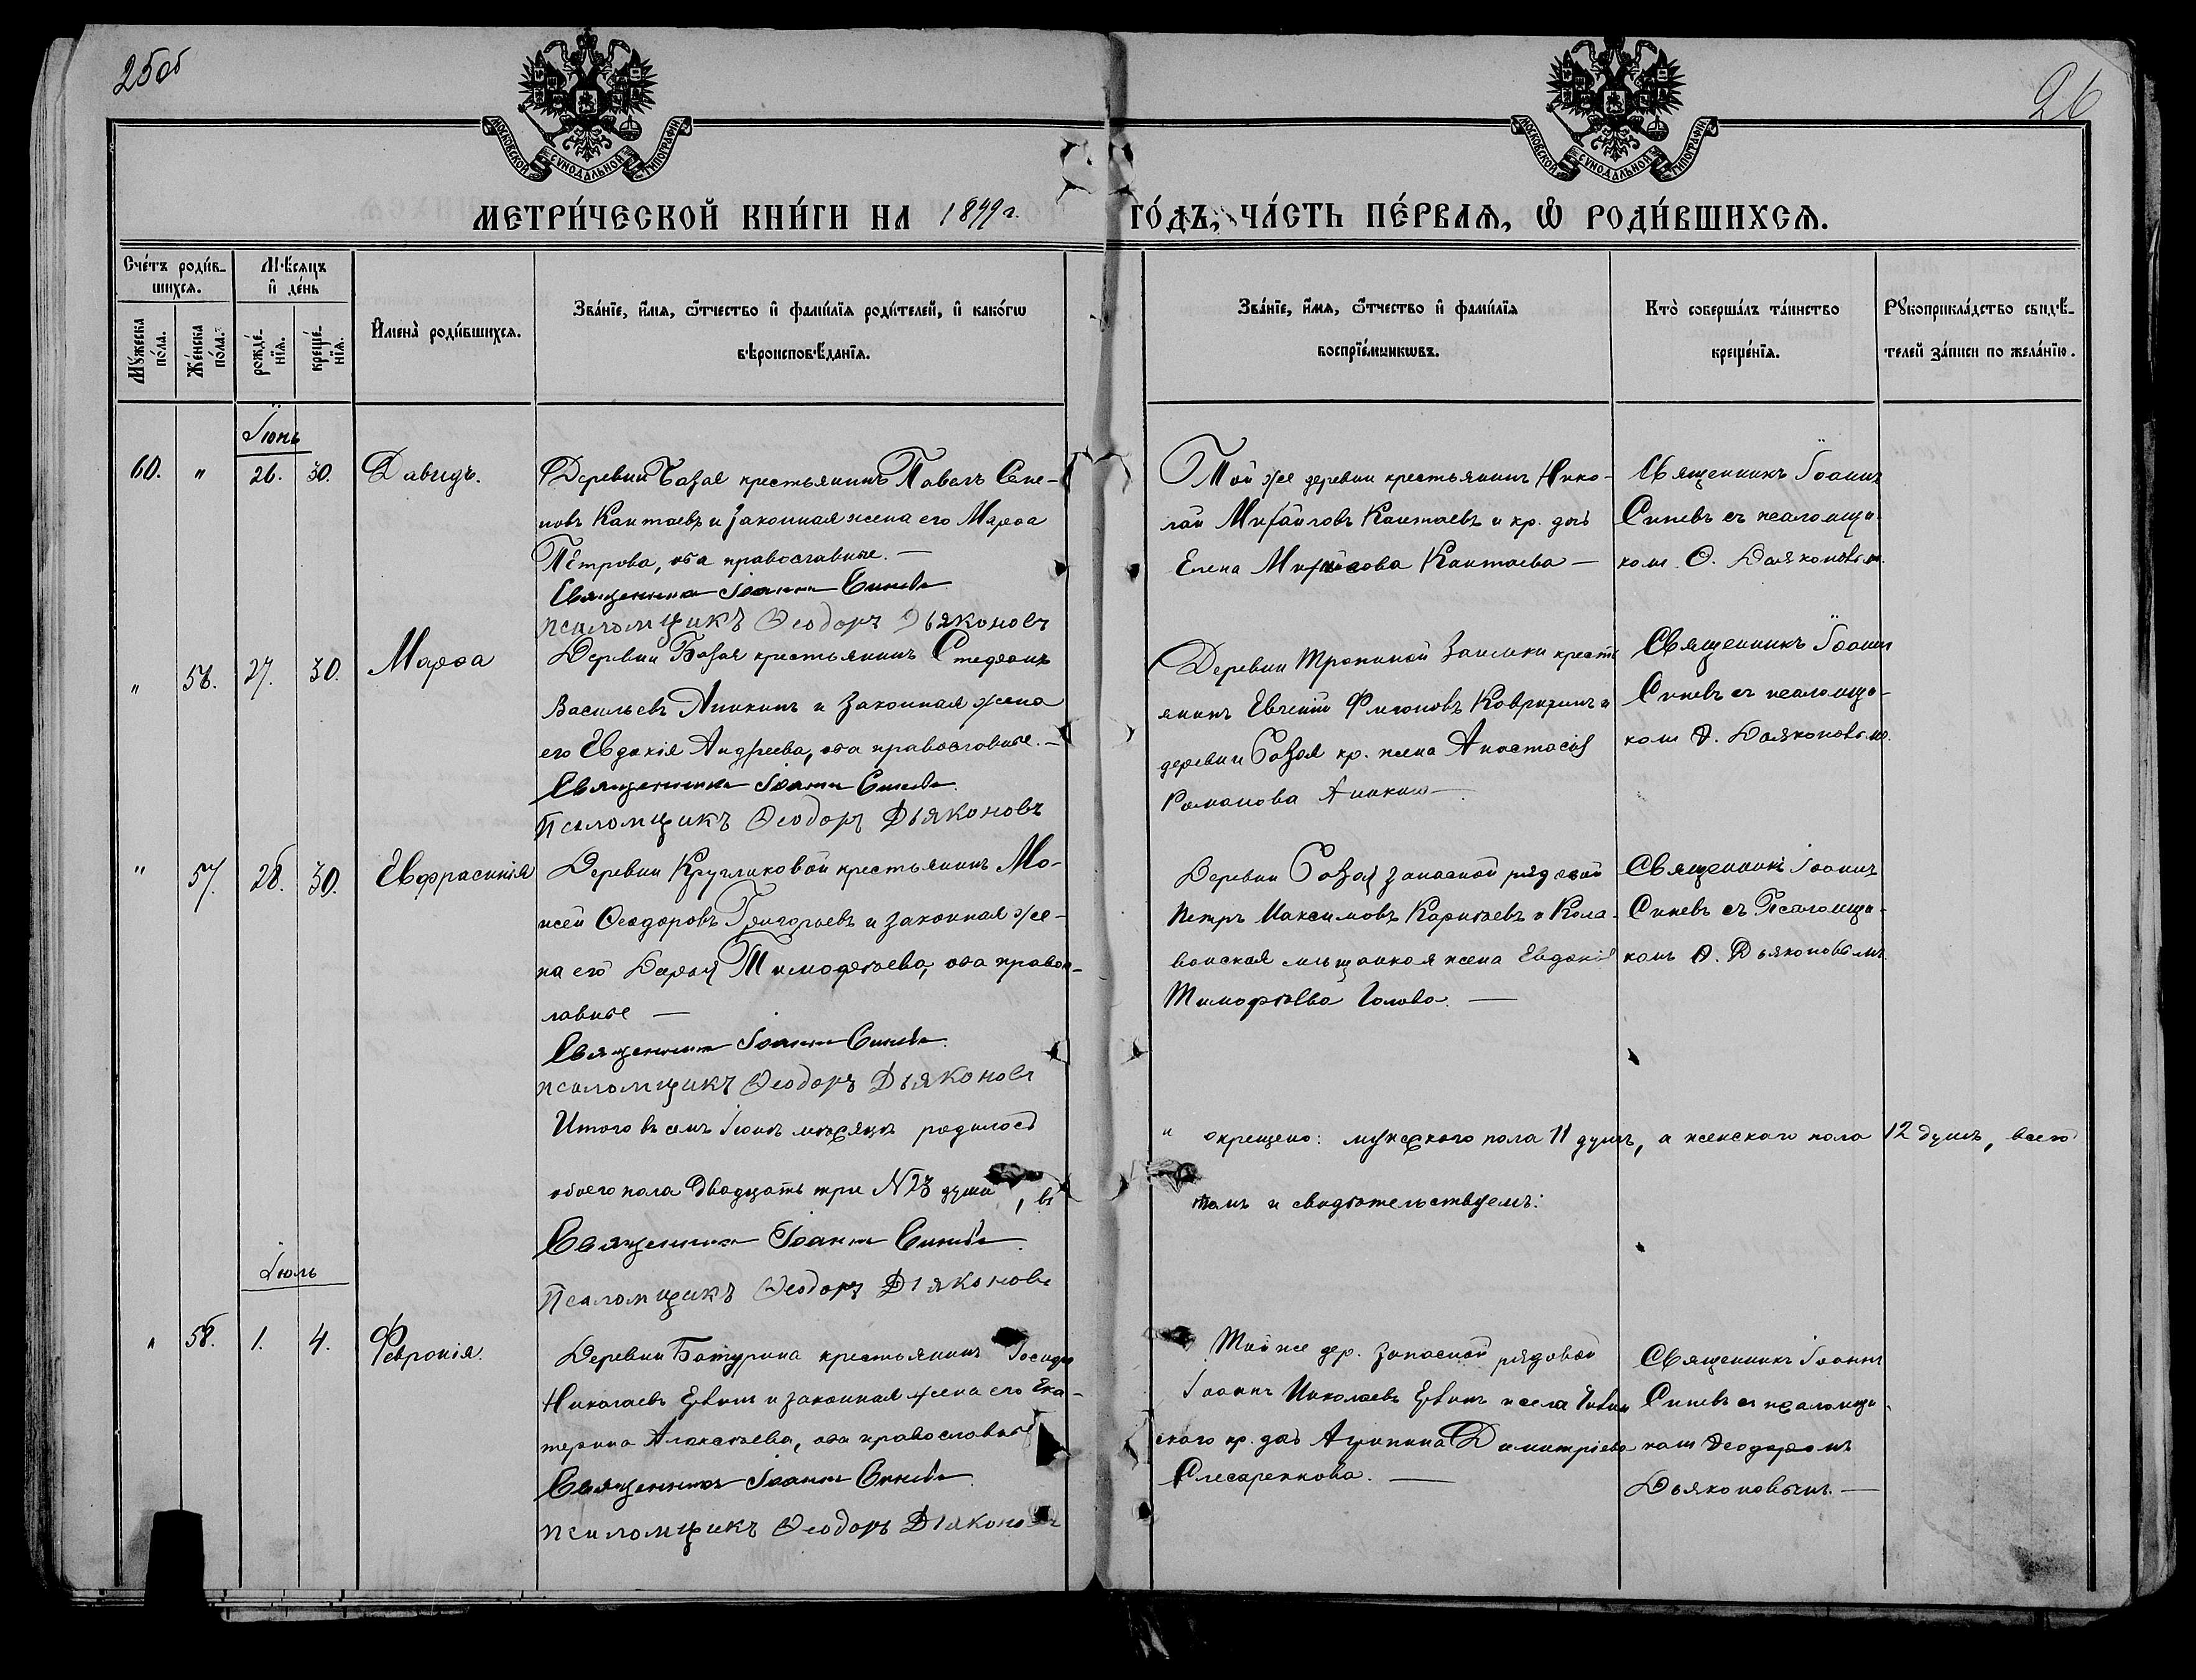 25об
26
МОСКОВСКОЙ СѴНОДАЛЬНОЙ ТИПОГРАФІИ
МОСКОВСКОЙ СѴНОДАЛЬНОЙ ТИПОГРАФІИ
МЕТРИ́ЧЕСКОЙ КНИ́ГИ НА 1899 г. ГО́ДЪ, ЧА́СТЬ ПЕ́РВАѦ, Ѡ҆ РОДИ́ВШИХСѦ.
Сче́тъ роди́в-
шихсѧ.
Му́жеска по́ла.
Же́нска по́ла.
Мѣ́сѧцъ и҆ де́нь
рожде́-нїѧ.
креще́-нїѧ.
И҆мена̀ роди́вшихсѧ.
Зва́нїе, и҆́мѧ, ѻ҆́тчество и҆ фами́лїѧ роди́телей, и҆ како́гѡ
вѣроисповѣ́данїѧ.
Зва́нїе, и҆́мѧ, ѻ҆́тчество и҆ фами́лїѧ
воспрїе́мникѡвъ.
Кто̀ соверша́лъ та́инство
креще́нїѧ.
Рꙋкоприкла́дство свидѣ́-
телей за́писи по жела́нїю.
Іюнь
60. " 26. 30. Давидъ.
Деревни Базая крестьянинъ Павелъ Семе-
новъ Каптаевъ и законная жена его Марѳа
Петрова, оба православные. —
Священникъ Іоаннъ Синевъ
псаломщикъ Ѳеодоръ Дьяконовъ
Той же деревни крестьянинъ Нико-
лай Михайловъ Каптаевъ и кр. дочь
Елена Каптаева —
Священникъ Іоаннъ
Синевъ съ псаломщи-
комъ Ѳ. Дьяконовым.
" 56. 27. 30. Марѳа
Деревни Базая крестьянинъ Стефанъ
Васильевъ Аникинъ и законная жена
его Евдокія Андреева, оба православные. —
Священникъ Іоаннъ Синевъ
Псаломщикъ Ѳеодоръ Дьяконовъ
Деревни Тропиной Заимки кресть
янинъ Евгеній Ковригинъ и
деревни Базая кр. жена Анастасія
Романова Аникин —
Священникъ Іоаннъ
Синевъ съ псаломщи-
комъ Ѳ. Дьяконовым.
" 57. 28. 30. Евфрасинія
Деревни Кругликовой крестьянинъ Мо-
исей Ѳеодоровъ Григорьевъ и законная же-
на его Дарья Тимофеева, оба правос-
лавные —
Священникъ Іоаннъ Синевъ
псаломщикъ Ѳеодоръ Дьяконовъ
Деревни Базая запасной рядовой
Петръ Максимовъ и Кола-
ванская мѣщанская жена Евдокія
Тимофѣева Голова. —
Священникъ Іоаннъ
Синевъ съ Псаломщи-
комъ Ѳ. Дьяконовымъ
Итого въ семъ Іюнѣ мѣсяцѣ родилось
" окрещено: мужскаго пола 11 душъ, а женскаго пола 12 душъ, всего
обоего пола двадцать три N 23 души, въ
томъ и свидѣтельствуемъ:
Священникъ Іоаннъ Синевъ
Псаломщикъ Ѳеодоръ Дьяконовъ
Іюль
" 58. 1. 4. Февронія.
Деревни Батурина крестьянинъ
Николаевъ и законная жена его Ека-
терина Алексѣева, оба православные
Священникъ Іоаннъ Синевъ
псаломщикъ Ѳеодоръ Дьяконовъ
Той же дер. запасной рядовой
Іоаннъ Николаевъ и села
скаго кр. дочь Агрипина Димитріева
Слесаренкова. —
Священникъ Іоаннъ
Синевъ съ псаломщи-
комъ Ѳеодоромъ
Дьяконовымъ. —